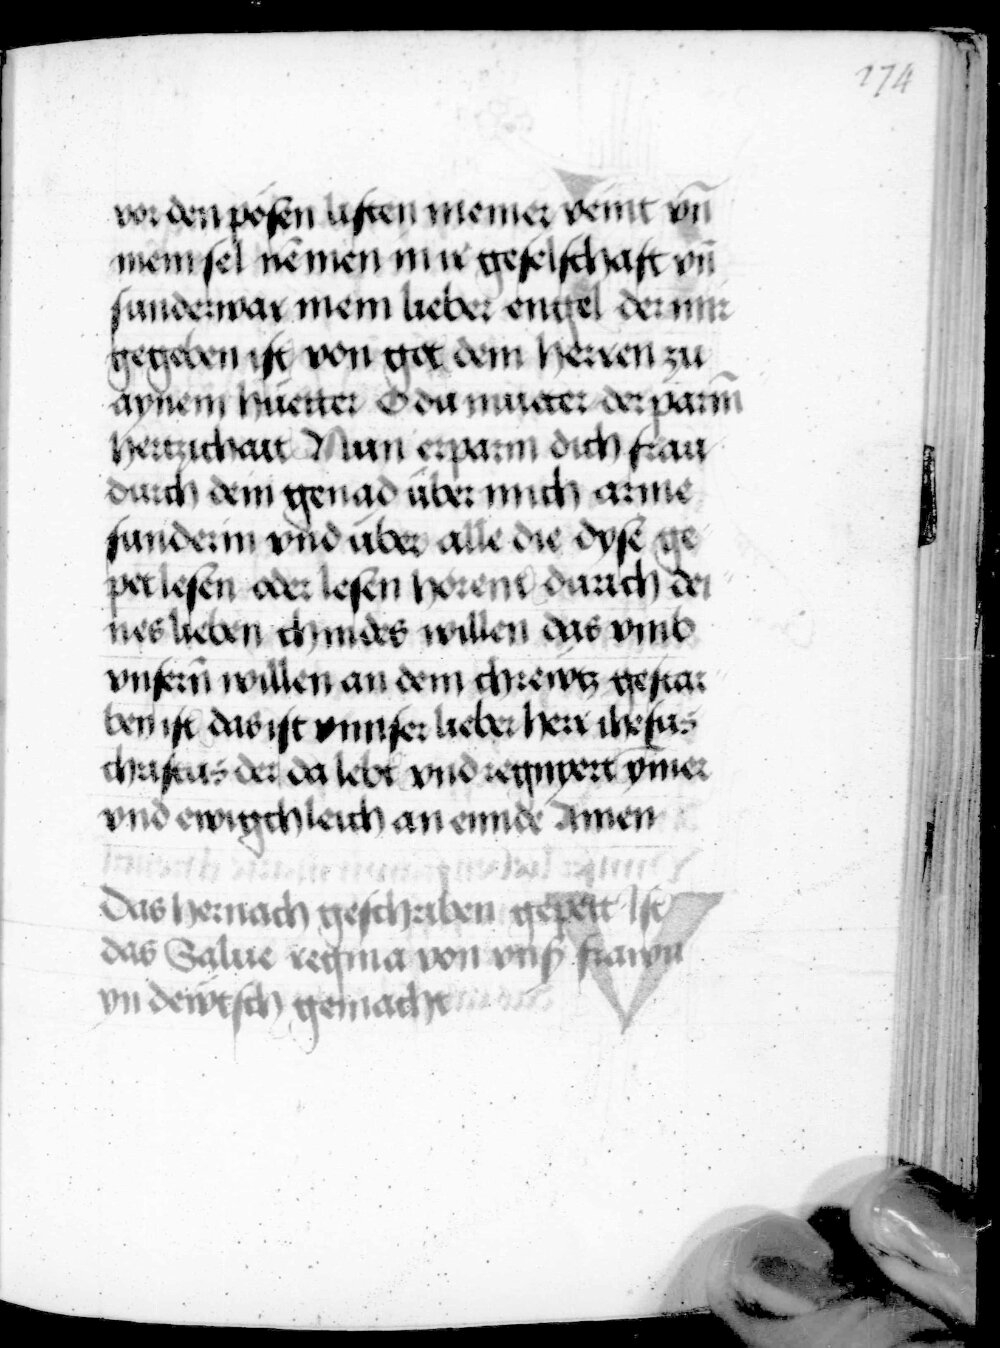 174
vor den pösen listen meiner veint vn̄
mein sel nemen in ir geselschaft vn̄
sunderwar mein lieber engel der mir
gegeben ist von got dem herren zu
aynem hüetter O du mueter der parm̄
hertzichait Nun erparm dich frau
durch dein genad über mich arme
sunderin vnd über alle die dyse ge
pet lesen oder lesen hörent durich dei
nes lieben chindes willen das vmb
vnsern̄ willen an dem chrewtz gestar
ben ist das ist vnnser lieber herr ihesus
christus der da lebt vnd regnyert ym̄er
vnd ewigchleich an ennde Amen
Das hernach geschriben gepett Ist
das Salue regina von vnß frawn
yn dewtsch gemacht